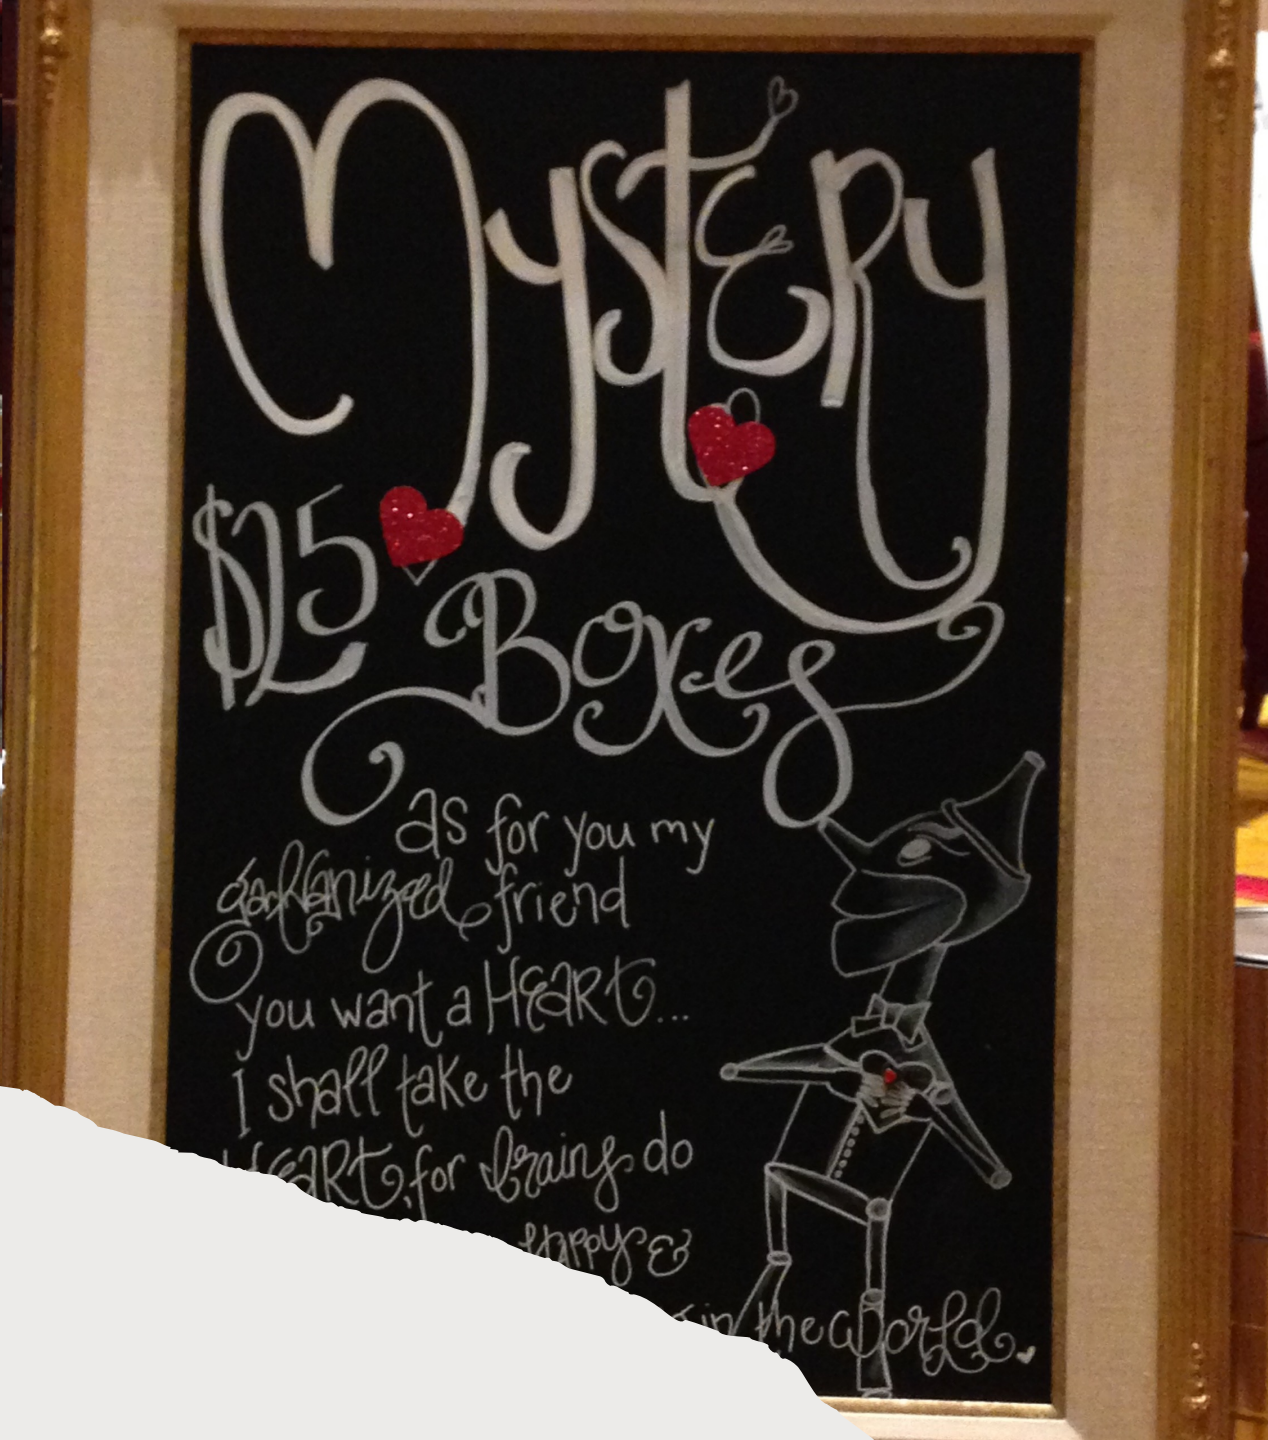 Mystery
$25
Boxes
as for you my
galvanized friend
you want a HEART...
I shall take the
HEART, for brains do
Happy &
in the world.